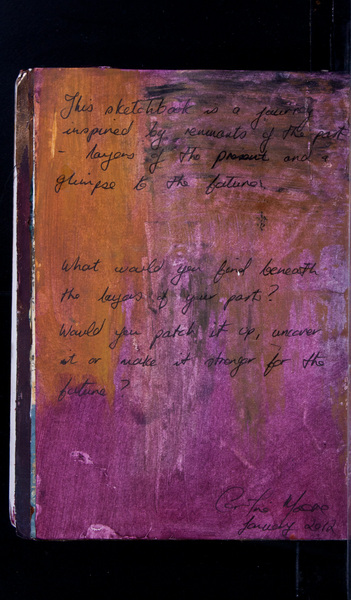 This sketchbook is a journey
inspired by remnants of the past
- layers of the present and a
glimpse to the future.
What would you find beneath
the layers of your past?
Would you patch it up, uncover
it or make it stronger for the
future?
January 2012